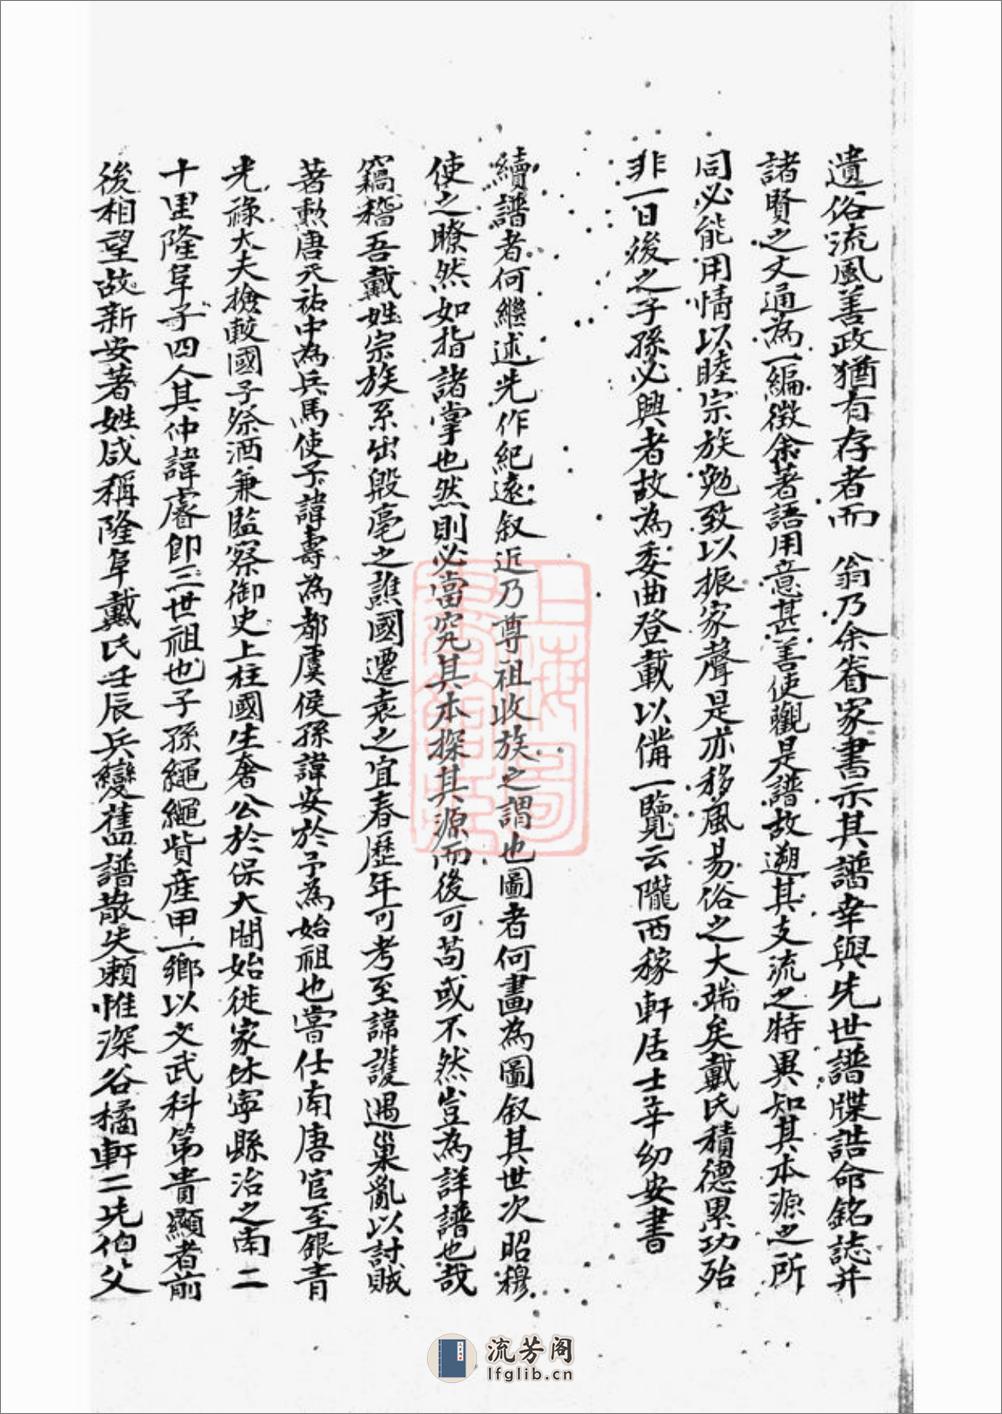 遺俗流風善政猶有存者而 翁乃余眷家書示其譜幸與先世譜牒誥命銘誌并
諸賢之文通為一編徵余著語用意甚善使觀是譜故遡其支流之特異知其本源之所
同必能用情以睦宗族勉致以振家聲是亦移風易俗之大端矣戴氏積德累功殆
非一日後之子孫必興者故為委曲登載以備一覽云隴西稼軒居士辛幼安書
續譜者何繼述先作紀遠叙近乃尊祖收族之謂也圖者何畫為圖叙其世次昭穆
使之瞭然如指諸掌也然則必當究其本探其源而後可苟或不然豈為詳譜也哉
竊稽吾戴姓宗族系出殷亳之譙國遷袁之宜春歷年可考至諱護遇巢亂以討賊
著勲唐天祐中為兵馬使子諱壽為都虞侯孫諱安於予為始祖也嘗仕南唐官至銀青
光祿大夫撿較國子祭酒兼監察御史上柱國生奢公於保大間始徙家休寧縣治之南二
十里隆阜子四人其仲諱睿即三世祖也子孫繩繩貲產甲一鄉以文武科第貴顯者前
後相望故新安著姓咸稱隆阜戴氏壬辰兵變舊譜散失賴惟深谷橘軒二先伯父
上海圖書館藏
流芳阁
lfglib.cn